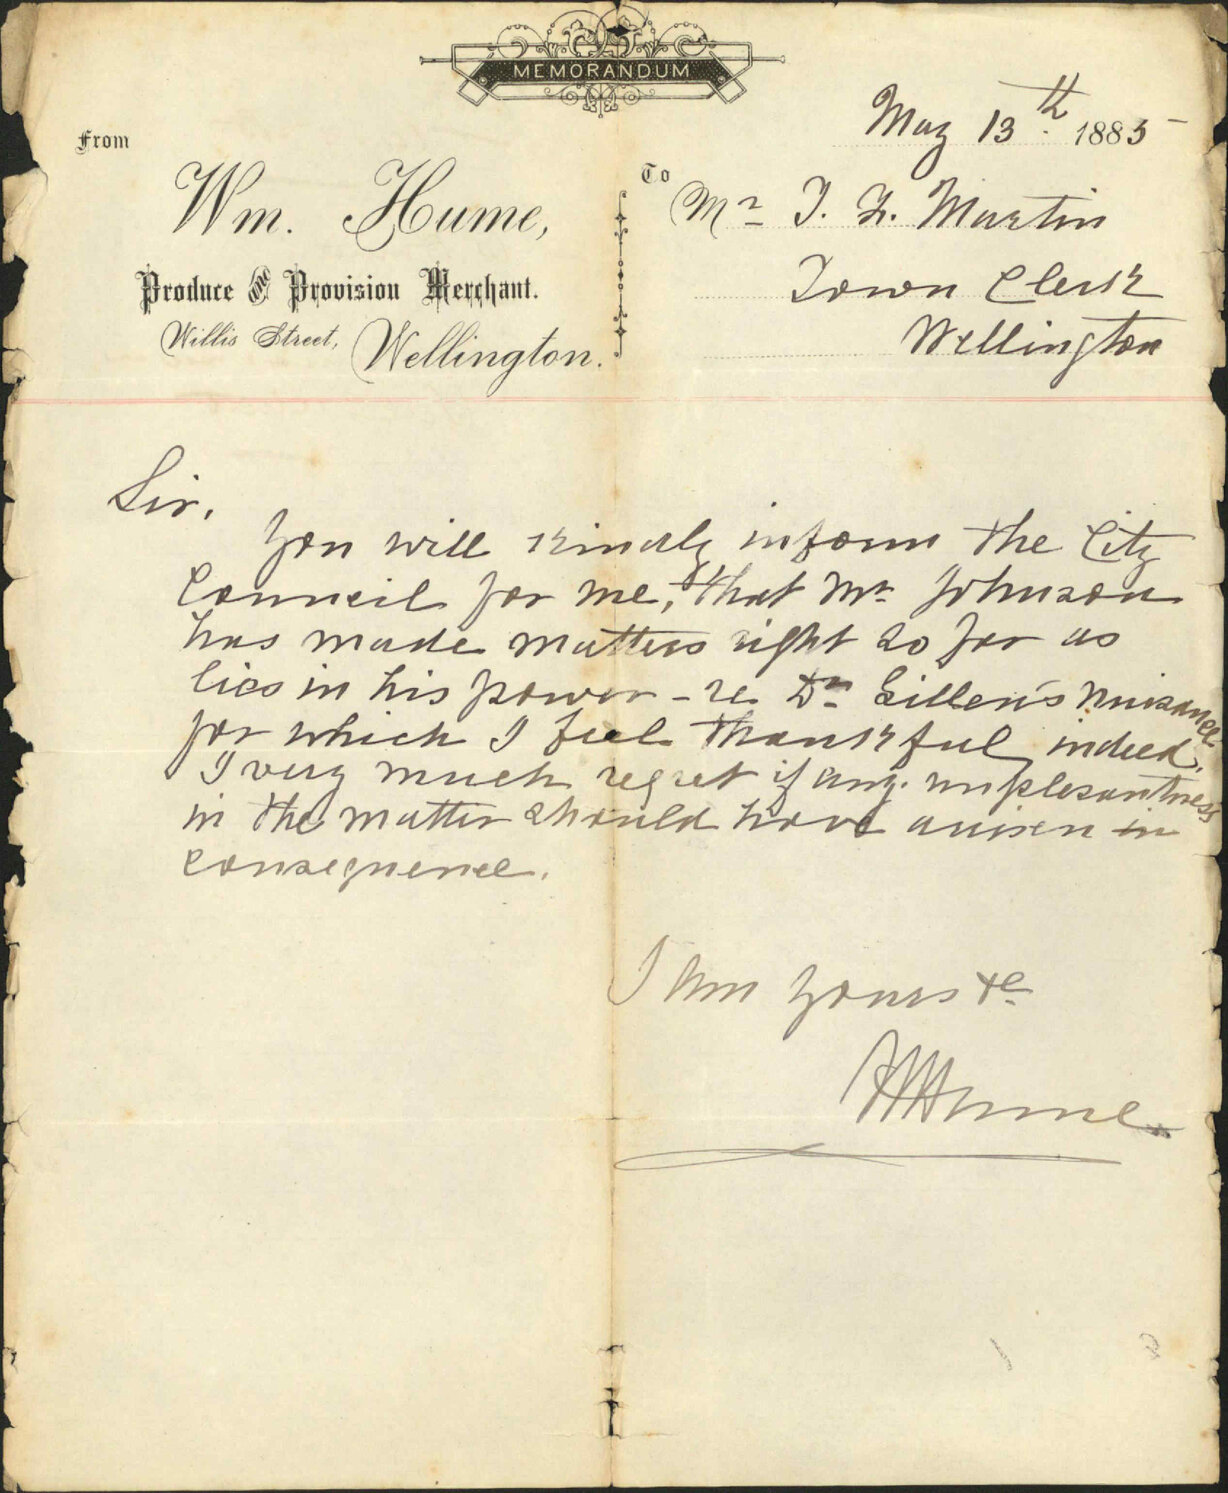 MEMORANDUM
May 13th 1885
From
To
Wm. Hume,
Produce & Provision Merchant.
Willis Street, Wellington.
Mr
Martin
Town Clerk
Wellington
Sir,
You will kindly inform the City
Council for me, that Mr Johnson
has made matters right so far as
lies in his power - re Dr Nuisance
for which I feel thankful indeed.
I very much regret if any unplesantness
in the matter should have arisen in
consequence.
I am yours &c
WHume